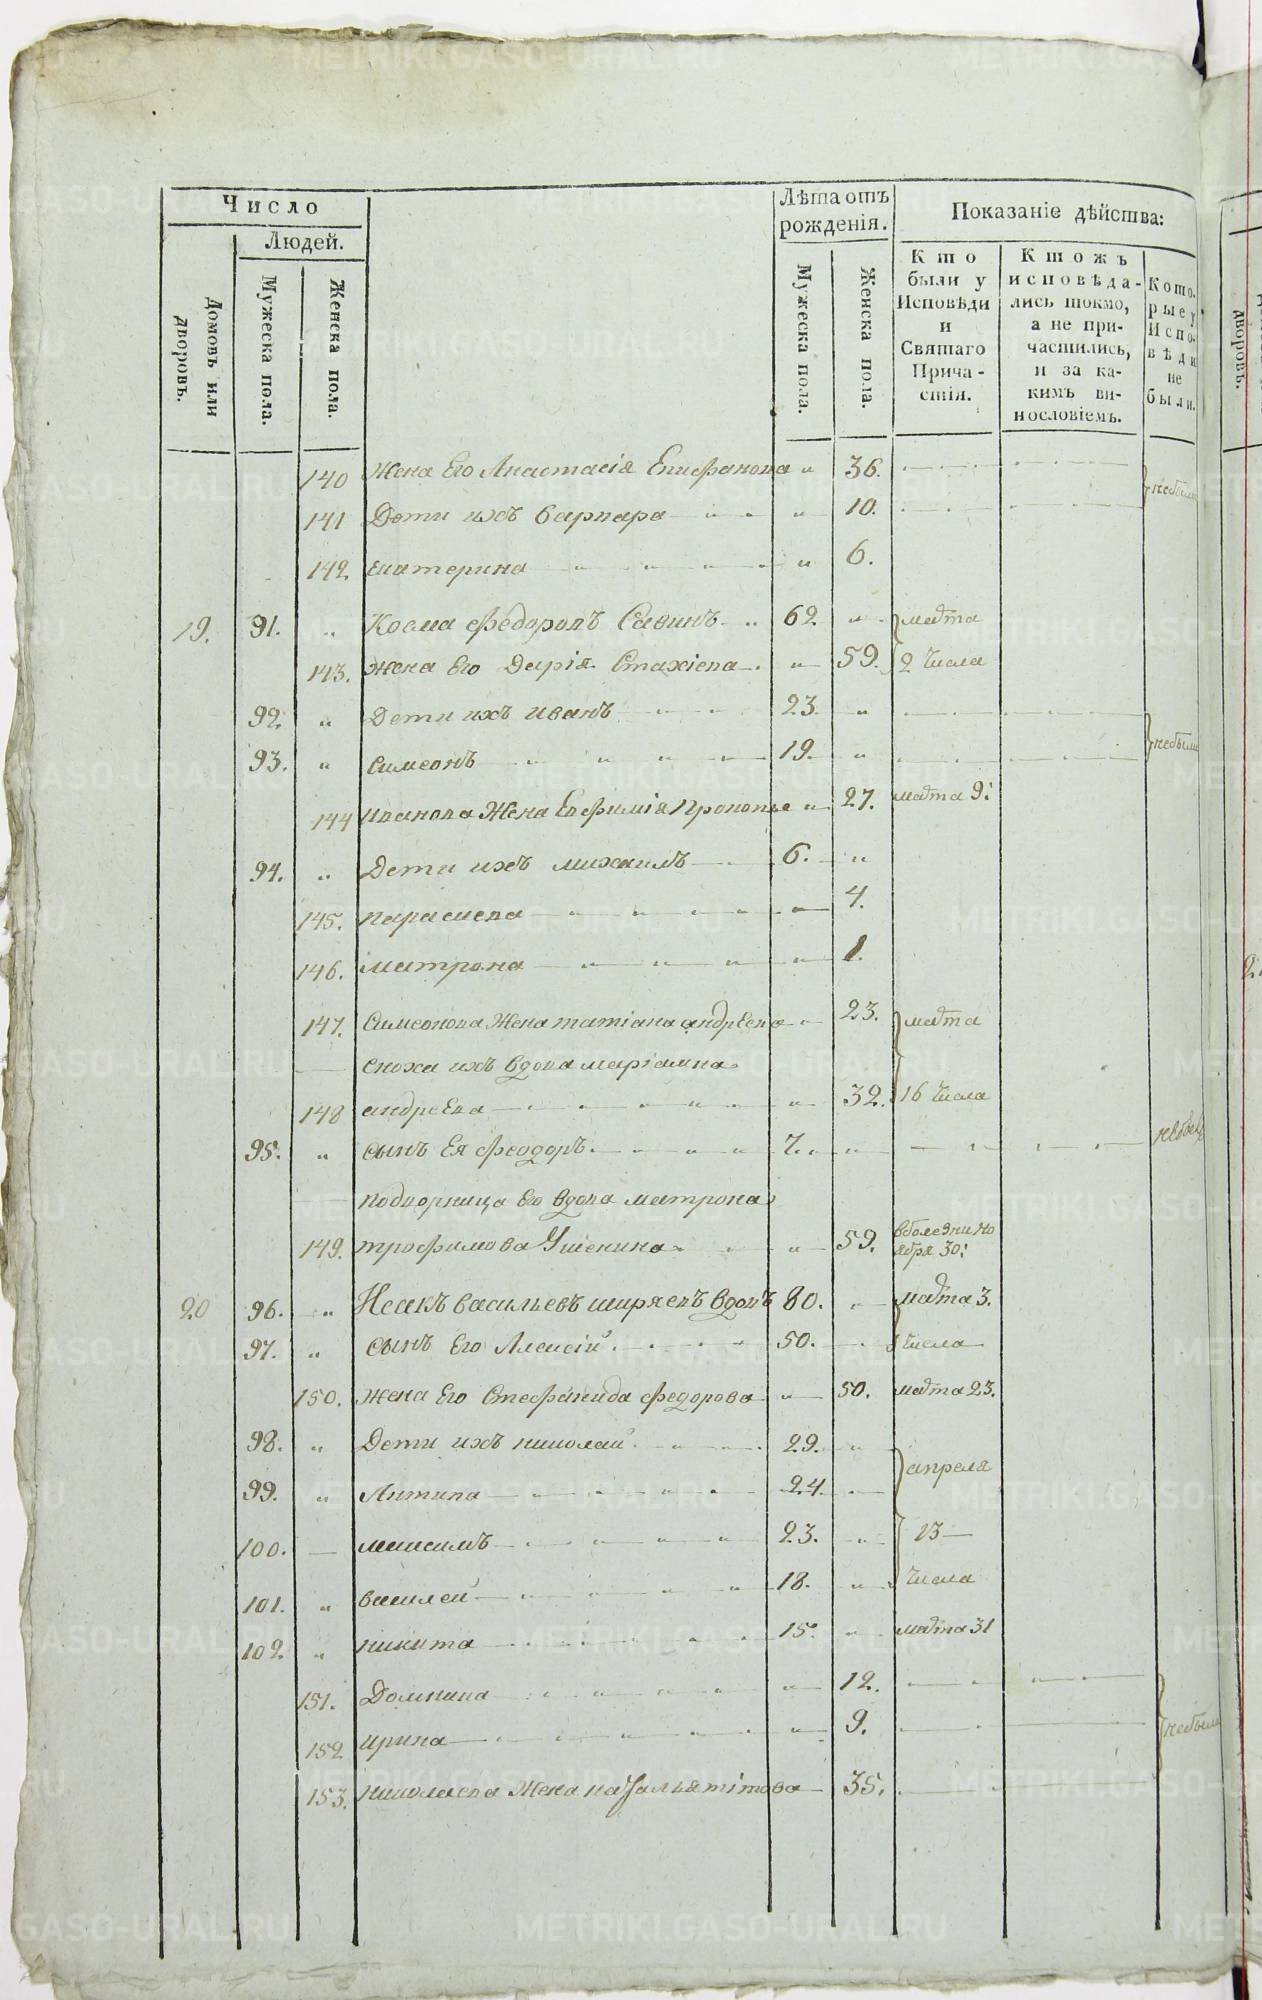 Число
Людей.
Домовъ или дворовъ.
Мужеска пола.
Женска пола.
Лѣта отъ рожденія.
Мужеска пола.
Женска пола.
Показаніе дѣйства:
Кто были у Исповѣди и Святаго Причастія.
Ктожъ исповѣдались токмо, а не причастились, и за какимъ винословіемъ.
Которые у Исповѣди не были.
140 Жена Его Анастасія Епифанова " 36. небыли
141 Дети ихъ варвара " 10.
142. екатерина " 6.
19. 91. " Косма Федоровъ Савинъ 62 " марта
143. жена Его Дарія Стахіева " 59. 2 числа
92. " Дети ихъ иванъ 23. " небыли
93. " симеонъ 19. "
144 иванова Жена Евфимія Прокопье " 27. марта 9:
94. " Дети ихъ михаилъ 6. "
145. параскева " 4.
146. матрона " 1.
147. симеонова Жена татіана андреева " 23. марта
сноха ихъ вдова маріамна
148 андреева " 32. 16 числа
95. " сынъ Ея феодоръ 7. " небылъ
подворница Его вдова матрона
149. трофимова " 59. вболезни но
ября 30:
20 96. " Исакъ васильевъ ширяевъ вдовъ 80. " марта 3.
97. " сынъ Его Алексій 50. числа
150. жена Его Стефанида федорова " 50. марта 23.
98. " Дети ихъ николай 29. "
апреля
99. " Антипа 24. "
100. максимъ 23. " 13
101. " василей 18. " числа
102. " никита 15. " марта 31
151. Домника " 12.
152 ирина " 9. небыли
153. николаева Жена наталья тітова 35.
дворовъ.
METRIKI.GASO-URAL.RU